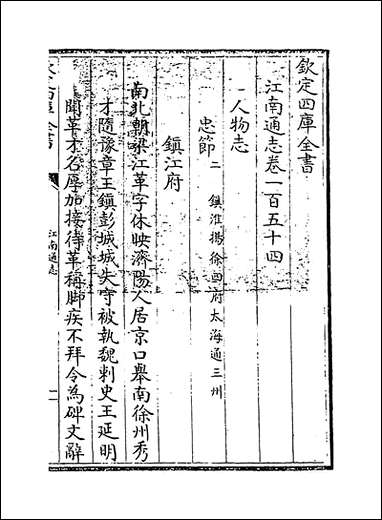 欽定四庫全書
江南通志卷一百五十四
人物志
忠節二 鎮淮揚徐四府太海通三州
鎮江府
南北朝梁江革字休映濟陽人居京口舉南徐州秀
才隨豫章王鎮彭城城失守被執魏刺史王延明
聞革才名厚加接待革稱脚疾不拜令為碑文辭
江南通志
一